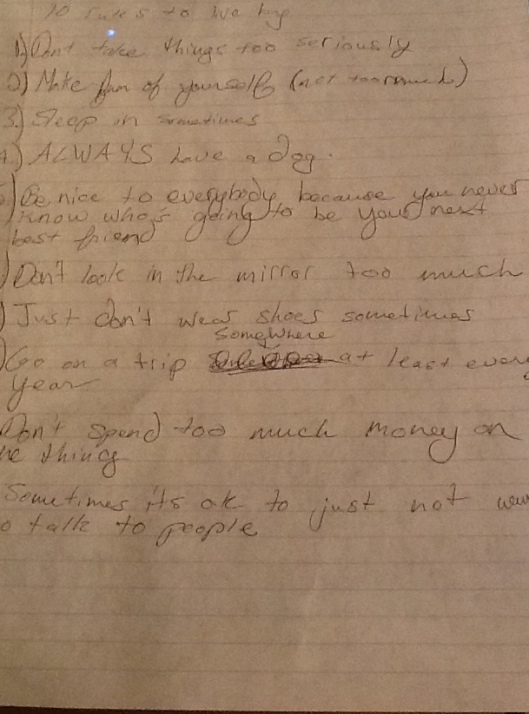 10 rules to live by
1) Dont take things too seriously
2) Make fun of yourself (not too much)
3.) Sleep in sometimes
4.) ALWAYS have a dog.
) Be nice to everybody because you never
know who's going to be your next
best friend
) Don't look in the mirror too much
) Just don't wear shoes sometimes
somewhere
) Go on a trip at least every
year
Don't spend too much money on
ne thing
Sometimes its ok to just not wan
o talk to people